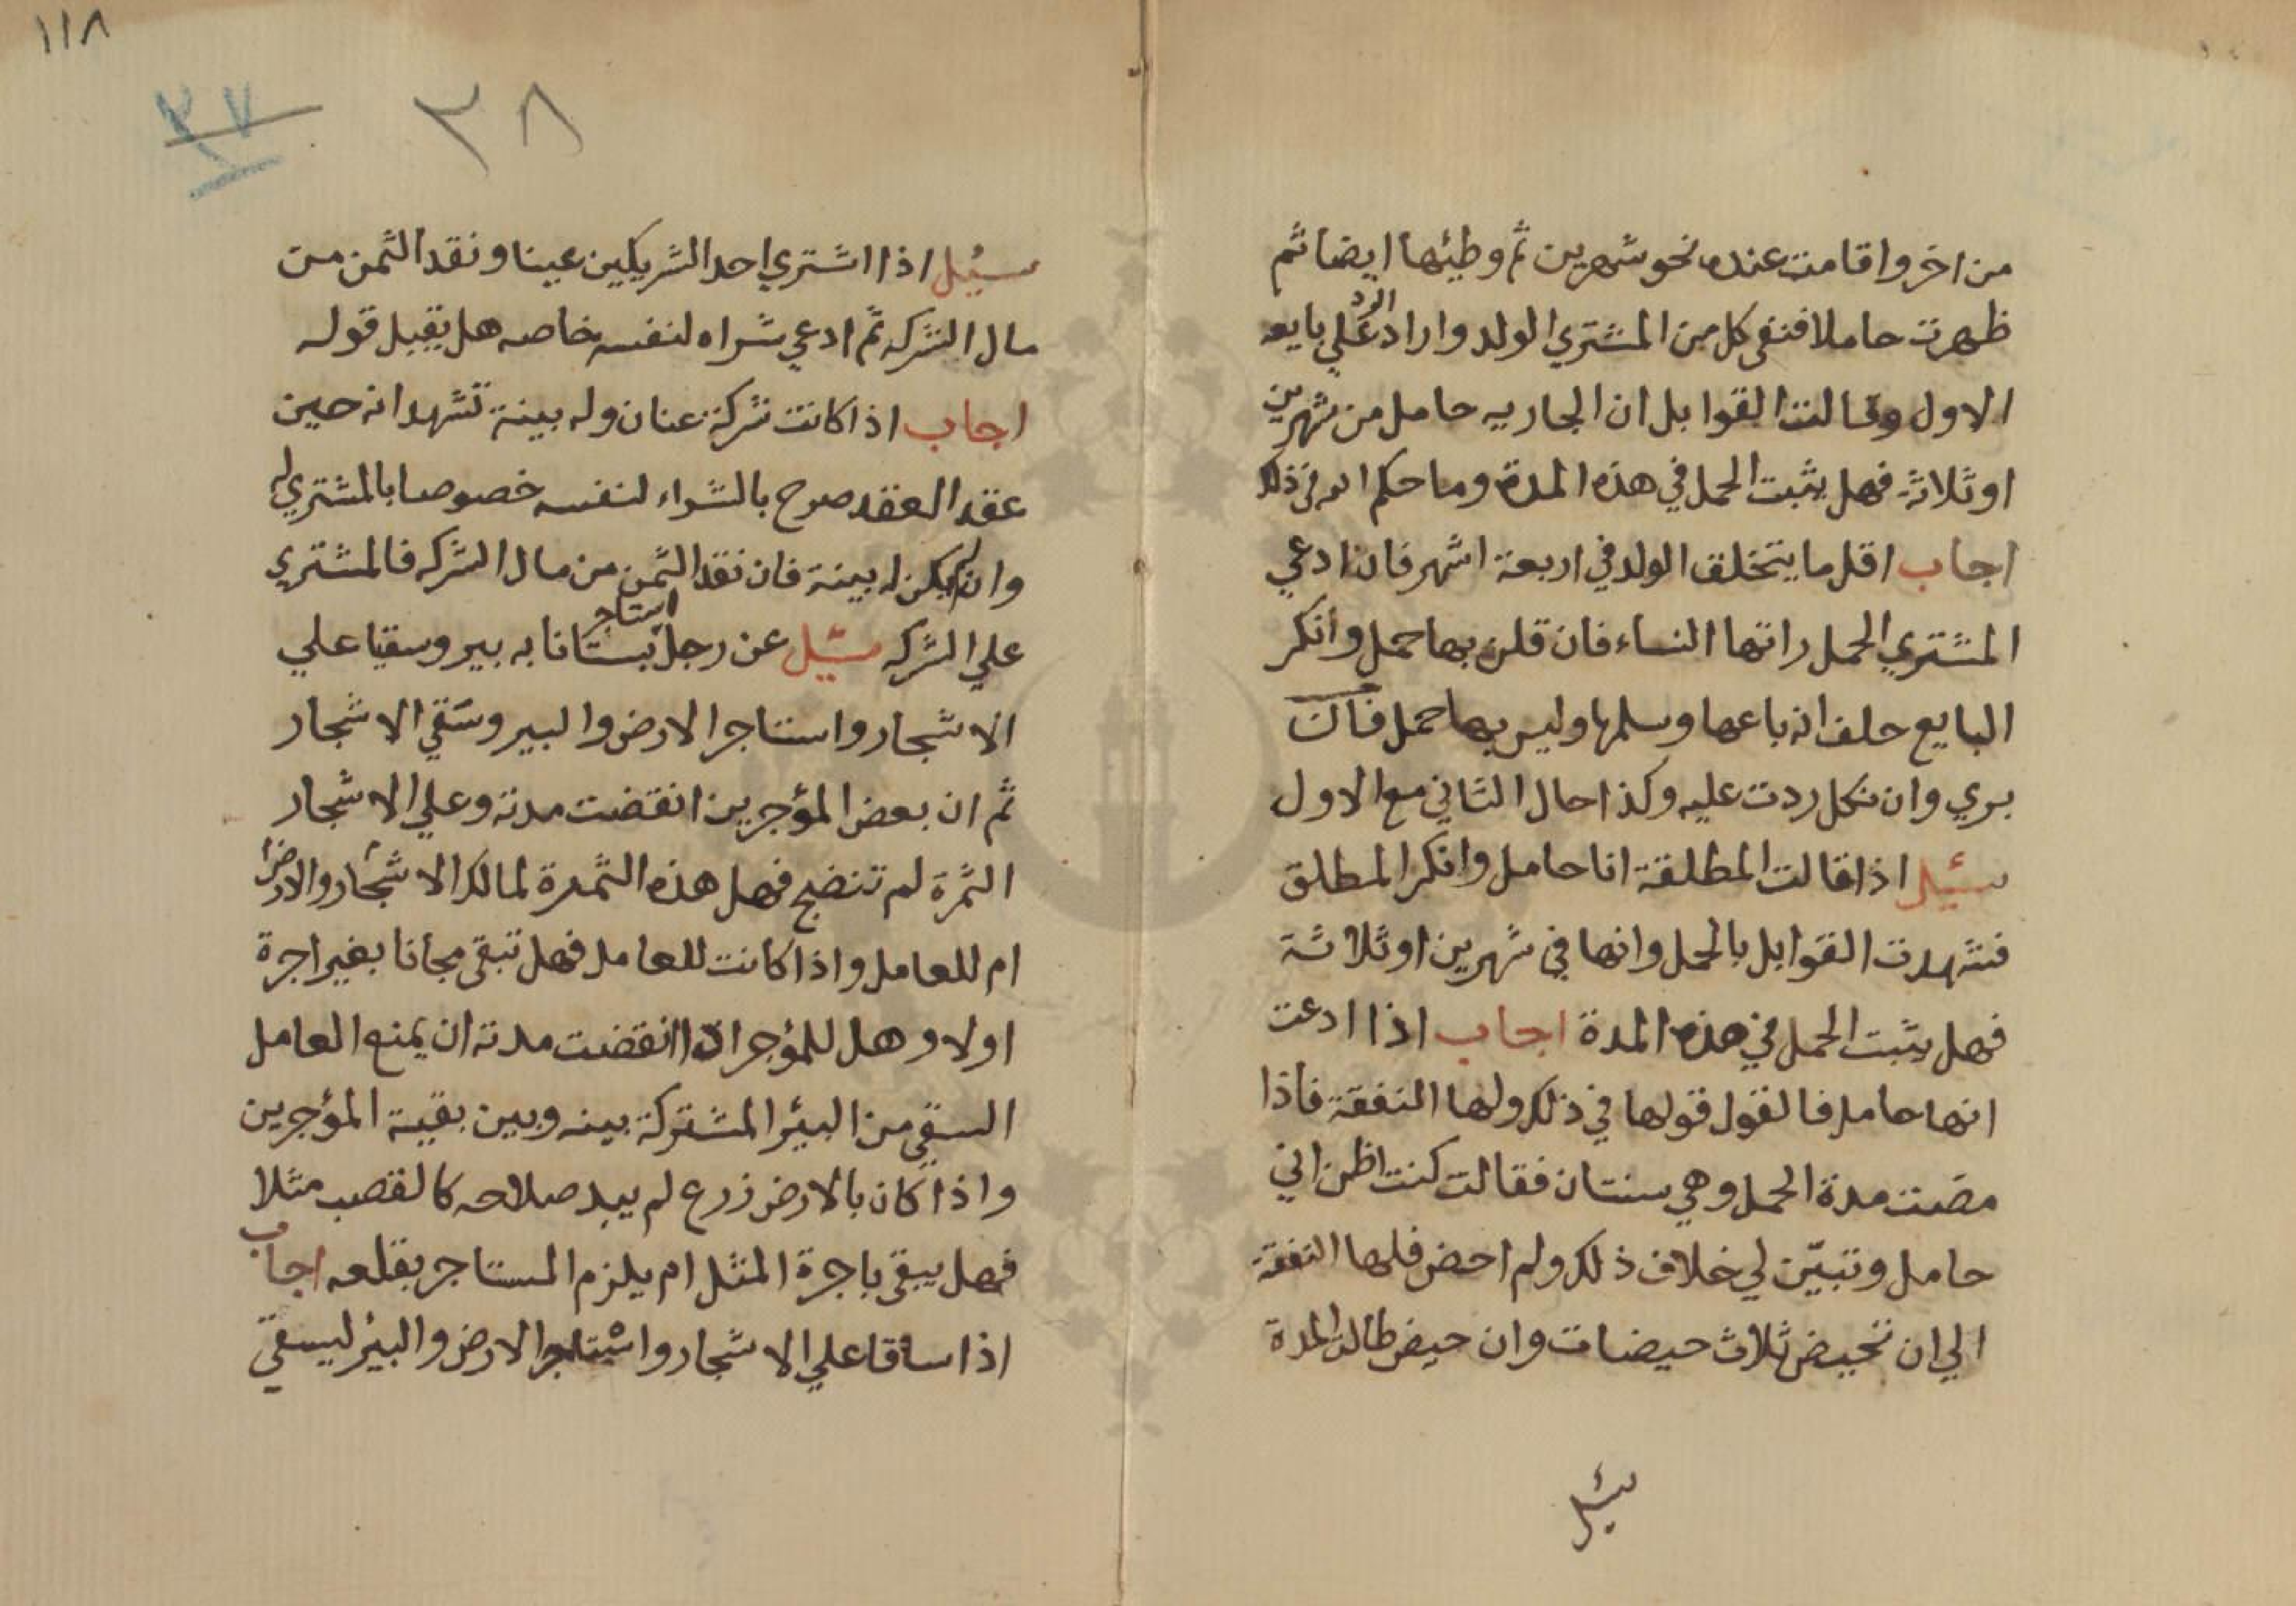 من اخر واقامت عنده نحو شهرين ثم وطيئها ايضا ثم
ظهرت حاملا فنفى كل من المشتري الولد واراد الرد علي بايعه
الاول وقالت القوابل ان الجاريه حامل من شهرين
او ثلاثة فهل يثبت الحمل في هذه المدة وما حكم الله في ذلك
اجاب اقل ما يتخلق الولد في اربعة اشهر فان ادعي
المشتري الحمل راتها النساء فان قلن بها حمل وانكر
البايع حلف انه باعها وسلمها وليس بها حمل فان
بري وان نكل ردت عليه وكذا حال الثاني مع الاول
سئيل اذا قالت المطلقة انا حامل وانكر المطلق
فشهدت القوابل بالحمل وانها في شهرين او ثلاثة
فهل يثبت الحمل في هذه المدة اجاب اذا ادعت
انها حامل فالقول قولها في ذلك ولها النفقة فاذا
مضت مدة الحمل وهي سنتان فقالت كنت اظن اني
حامل وتبيّن لي خلاف ذلك ولم احض فلها النفقة
الي ان تحيض ثلاث حيضات وان حيض طالت المدة
سئيل
١١٨
٣٨
٣٧
سيُل اذا اشتري احد الشريكين عينا ونقد الثمن من
مال الشركه ثم ادعي شراه لنفسه خاصه هل يقبل قوله
اجاب اذا كانت شركة عنان وله بينة تشهد انه حين
عقد العقد صرح بالشراء لنفسه خصوصا بالمشتري له
وان لم يكن له بينة فان نقد الثمن من مال الشركه فالمشتري
علي الشركه سئيل عن رجل استاجر بستانا به بير وسقيا علي
الاشجار واستاجر الارض والبير وسَقي الاشجار
ثم ان بعض المؤجرين انقضت مدته وعلي الاشجار
الثمرة لم تنضج فهل هذه الثمرة لمالك الاشجار والارض
ام للعامل واذا كانت للعامل فهل تبقى مجانا بغير اجرة
اولا وهل للمؤجر اذا انقضت مدته ان يمنع العامل
السقي من البئر المشتركة بينه وبين بقية المؤجرين
واذا كان بالارض زرع لم يبد صلاحه كالقصب مثلا
فهل يبقى باجرة المثل ام يلزم المستاجر بقلعه اجاب
اذا ساقا علي الاشجار واستاجر الارض والبئر ليسقي